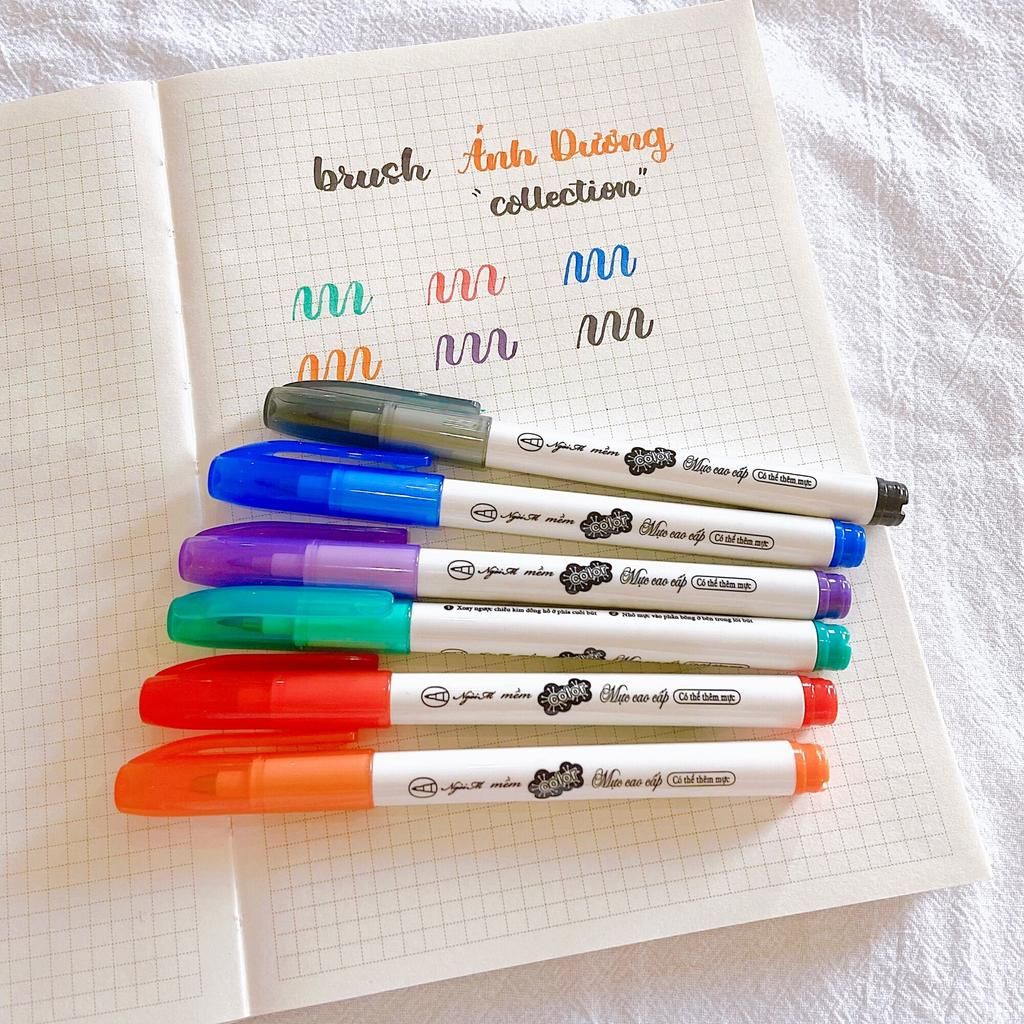 brush Ánh Dương
"collection"
Ngòi mềm color Mực cao cấp Có thể thêm mực
Ngòi mềm color Mực cao cấp Có thể thêm mực
Ngòi mềm color Mực cao cấp Có thể thêm mực
1 Xoay ngược chiều kim đồng hồ ở phía cuối bút 2 Nhỏ mực vào phần bông ở bên trong lõi bút
Ngòi mềm color Mực cao cấp Có thể thêm mực
Ngòi mềm color Mực cao cấp Có thể thêm mực